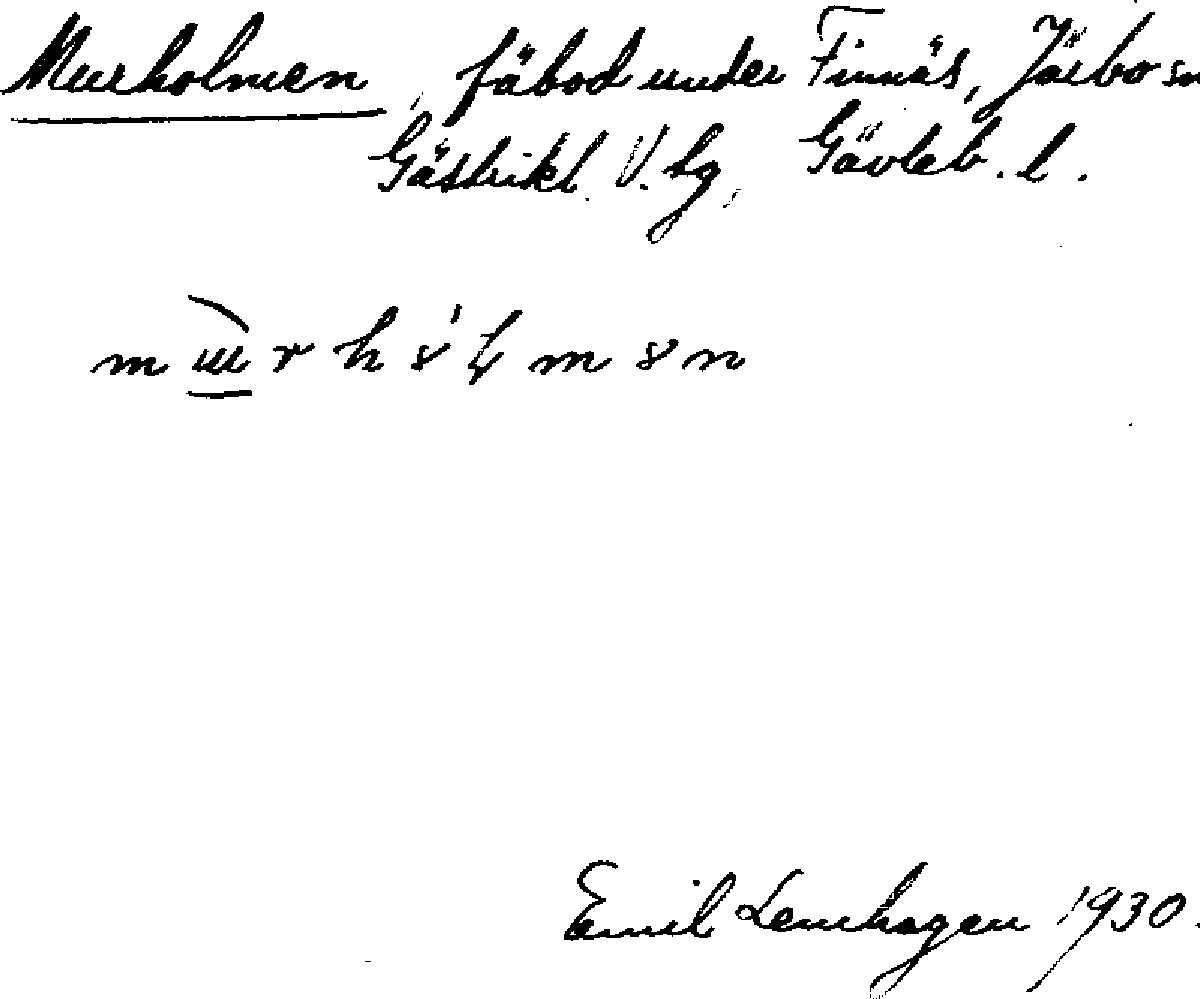 Murholmen, fäbod under Finnäs, Järbo sn
Gästrikl. V. tg, Gävleb. l.
Emil Lenhagen 1930.